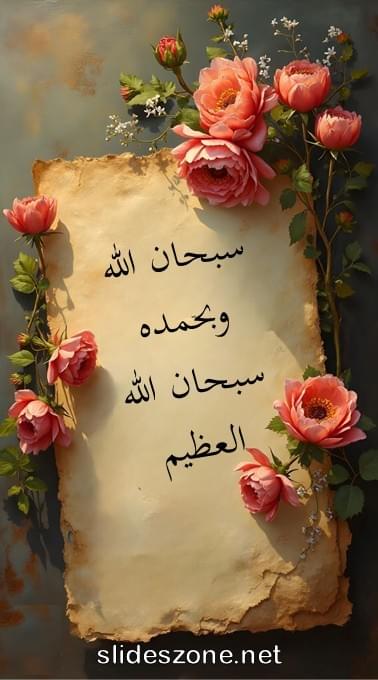 سبحان الله
وبحمده
سبحان الله
العظيم
slideszone.net